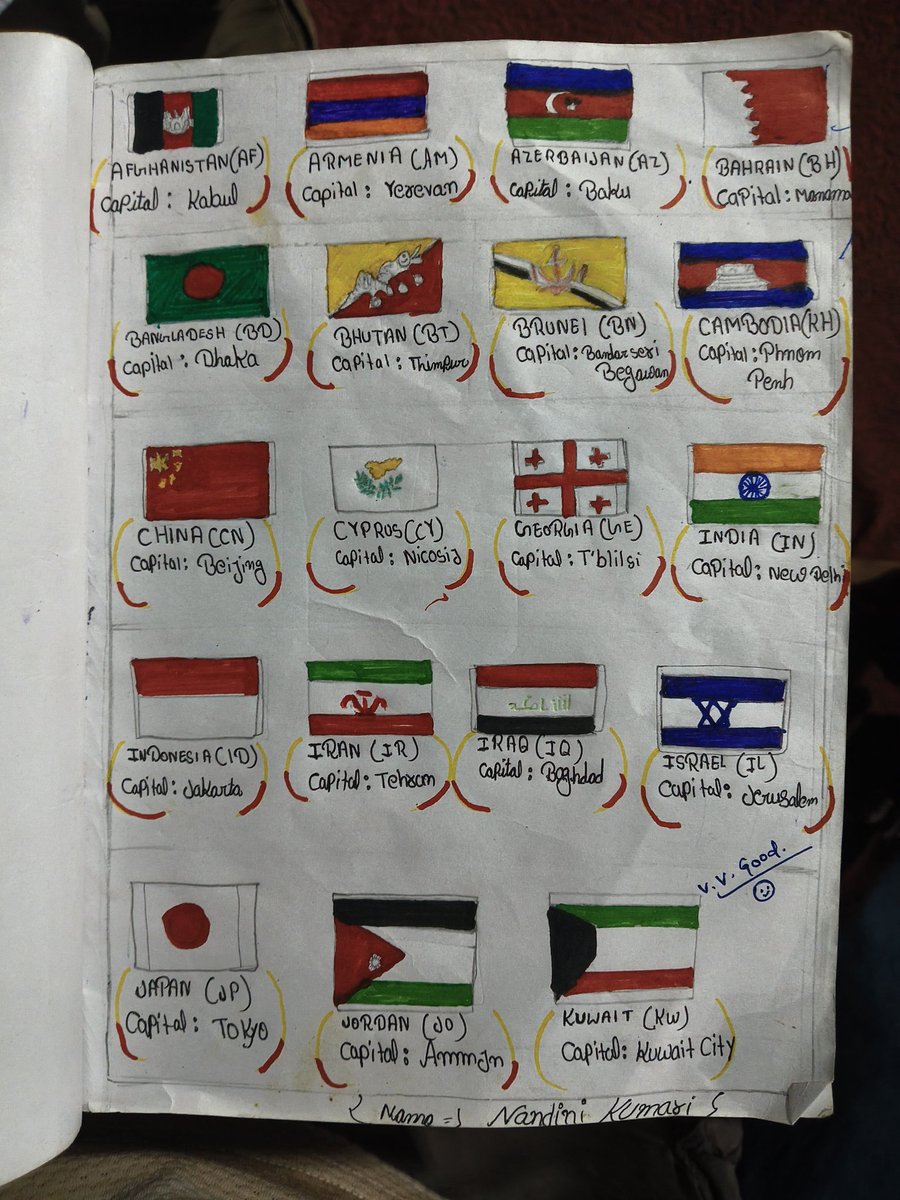 AFGHANISTAN(AF)
Capital: Kabul
ARMENIA (AM)
Capital: Yerevan
AZERBAIJAN(AZ)
Capital: Baku
BAHRAIN(BH)
Capital: Manama
BANGLADESH (BD)
Capital: Dhaka
BHUTAN(BT)
Capital:
BRUNEI (BN)
Capital: Bandar seri
Begawan
CAMBODIA(KH)
Capital: Phnom
Penh
CHINA(CN)
Capital: Beijing
CYPRUS(CY)
Capital: Nicosia
GEORGIA (GE)
Capital: T'blilsi
INDIA (IN)
Capital: New Delhi
INDONESIA(ID)
Capital: Jakarta
IRAN (IR)
Capital: Tehran
IRAQ (IQ)
Capital: Baghdad
ISRAEL (IL)
Capital: Jerusalem
V.V. Good.
JAPAN (JP)
Capital: TOKYO
JORDAN (JO)
Capital: Amman
KUWAIT (KW)
Capital: Kuwait City
{ Name => Nandini Kumari }